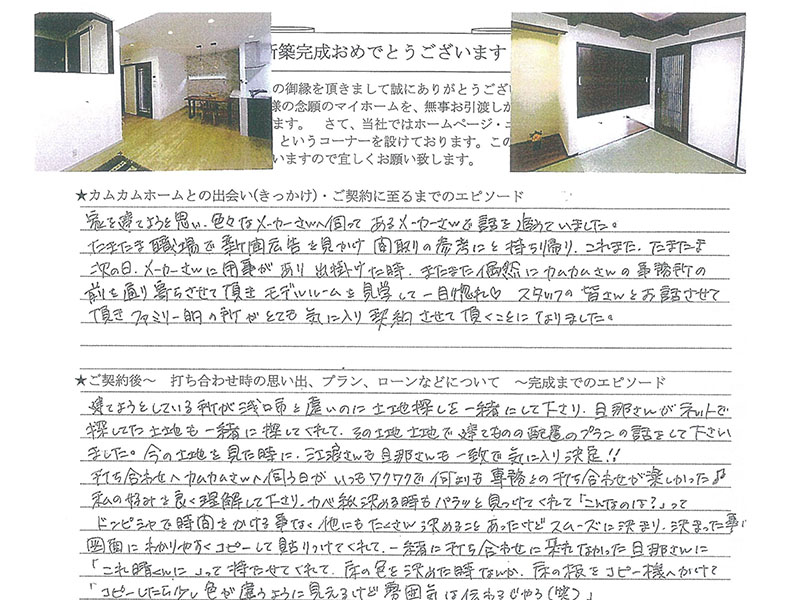 新築完成おめでとうございます
の御縁を頂きまして誠にありがとうござい
様の念願のマイホームを、無事お引渡しが
ます。 さて、当社ではホームページ・ニ
というコーナーを設けております。この
いますので宜しくお願い致します。
★カムカムホームとの出会い(きっかけ)・ご契約に至るまでのエピソード
家を建てようと思い、色々なメーカーさんへ伺って あるメーカーさんで話を進めていました。
たまたま職場で新聞広告を見かけ 間取りの参考にと持ち帰り、これまた、たまたま
次の日、メーカーさんに用事があり出掛けた時、またまた偶然にカムカムさんの事務所の
前を通り寄らせて頂き モデルルームを見学して一目惚れ♡ スタッフの皆さんとお話させて
頂き ファミリー的の所がとても気に入り契約させて頂くことになりました。
★ご契約後～ 打ち合わせ時の思い出、プラン、ローンなどについて ～完成までのエピソード
建てようとしている所が浅口市と遠いのに土地探しを一緒にして下さり、旦那さんがネットで
探してた土地も一緒に探してくれて、その土地土地で建てものの配置のプランの話をして下さい
ました。今の土地を見た時に、江渡さんも旦那さんも一致で気に入り決定!!
打ち合わせへカムカムさんへ伺う日がいつもワクワクで何よりも専務との打ち合わせが楽しかった♪
私の好みを良く理解して下さり、カベ紙決める時もパラッと見つけてくれて「こんなのは?」って
ドンピシャで時間をかける事なく、他にもたくさん決めることあったけどスムーズに決まり、決まった事
図面にわかりやすくコピーして貼りつけてくれて、一緒に打ち合わせに来れなかった旦那さんに
「これ晴くんに」って持たせてくれて、床の色を決めた時なんか、床の板をコピー機へかけて
「コピーしたら少し色が違うように見えるけど雰囲気は伝わるじゃろう(笑)」